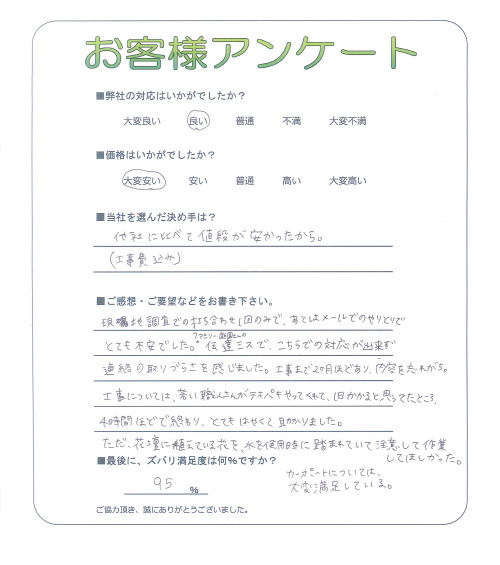 お客様アンケート
■弊社の対応はいかがでしたか？
大変良い 良い 普通 不満 大変不満
■価格はいかがでしたか？
大変安い 安い 普通 高い 大変高い
■当社を選んだ決め手は？
他社に比べて値段が安かったから。
(工事費込み)
■ご感想・ご要望などをお書き下さい。
現場地調査での打ち合わせ1回のみで、あとはメールでのやりとりで
とても不安でした。伝達ミスで、こちらでの対応が出来ず
連絡の取りづらさを感じました。工事まで2か月ほどあり、内容を忘れがち。
工事については、若い職人さんがテキパキやってくれて、1日かかると思ってたところ、
4時間ほどで終わり、とてもはやくて助かりました。
ただ、花壇に植えている花を、水を使用時に踏まれていて注意して作業
してほしかった。
■最後に、ズバリ満足度は何%ですか？
95 %
カーポートについては、
大変満足している。
ご協力頂き、誠にありがとうございました。